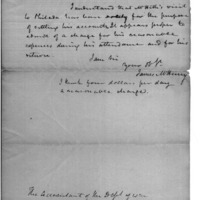 I understand that Mr Hill's visit
to Philada has been solely for the purpose
of settling his accounts. It appears proper to
admit of a charge for his reasonable
expences during his attendance and for his
return.
I am Sir
Your Ob St.
James McHenry
I think four dollars per day
a reasonable charge.
The Accountant of the Dept of War